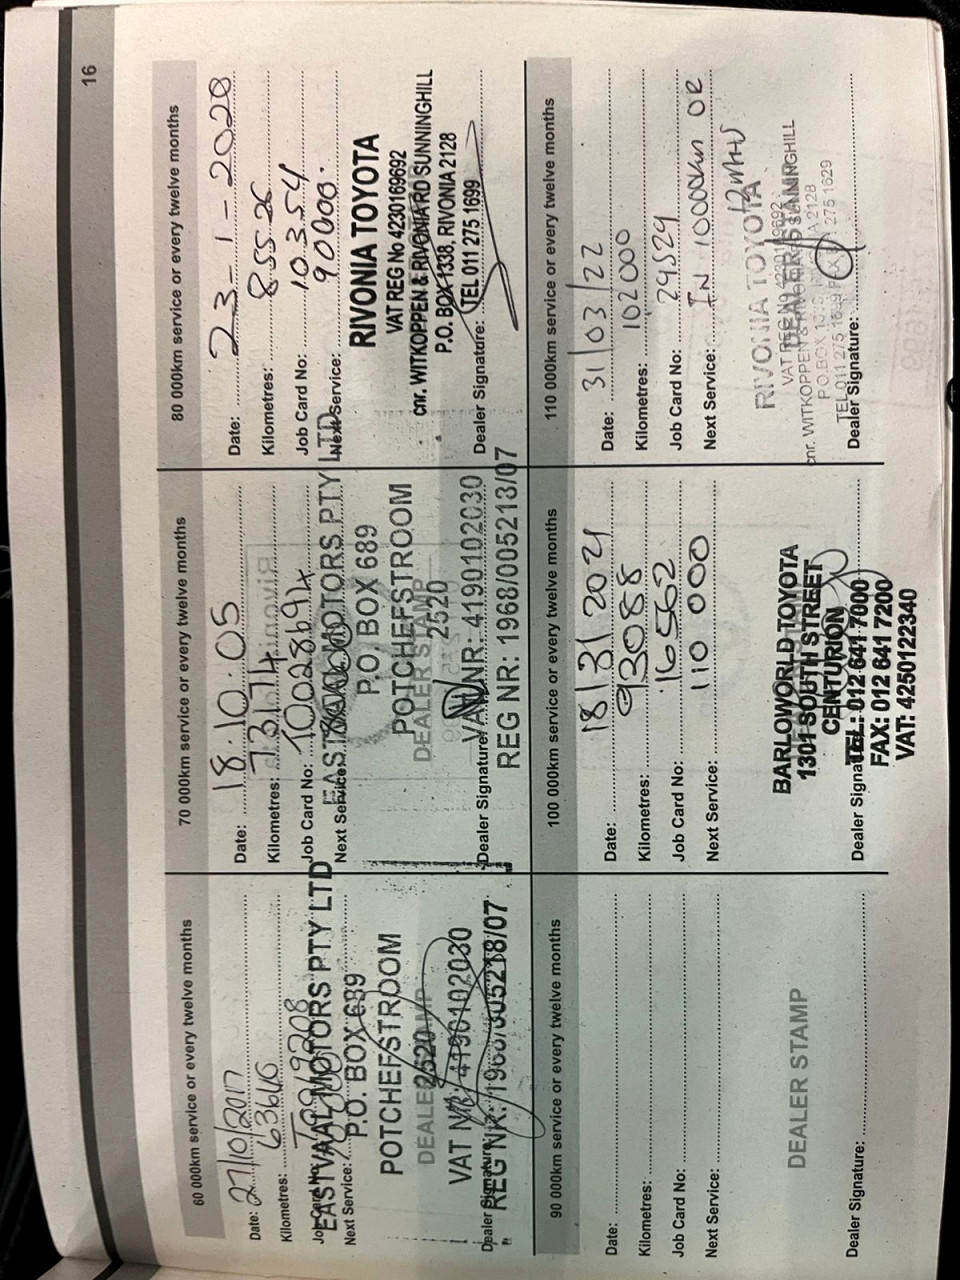 16
60 000km service or every twelve months
Date: 27/10/2017
Kilometres: 63646
Job Card No:
Next Service:
EASTVAAL MOTORS PTY LTD
P.O. BOX 689
POTCHEFSTROOM
2520
DEALER STAMP
VAT NR: 4190102030
Dealer Signature:
REG NR: 1968/005218/07
70 000km service or every twelve months
Date: 18.10.05
Kilometres: 73174
Job Card No:
Next Service:
EASTVAAL MOTORS PTY LTD
P.O. BOX 689
POTCHEFSTROOM
2520
DEALER STAMP
VAT NR: 4190102030
Dealer Signature:
REG NR: 1968/005218/07
80 000km service or every twelve months
Date: 23-1-2020
Kilometres: 85526
Job Card No: 10354
Next Service: 90000.
RIVONIA TOYOTA
VAT REG No 4230169692
cnr. WITKOPPEN & RIVONIA RD SUNNINGHILL
P.O. BOX 1338, RIVONIA 2128
TEL 011 275 1699
Dealer Signature:
90 000km service or every twelve months
Date:
Kilometres:
Job Card No:
Next Service:
DEALER STAMP
Dealer Signature:
100 000km service or every twelve months
Date: 18/31/2021
Kilometres: 93088
Job Card No: 16562
Next Service: 110 000
BARLOWORLD TOYOTA
1301 SOUTH STREET
CENTURION
TEL: 012 641 7000
Dealer Signature:
FAX: 012 641 7200
VAT: 4250122340
110 000km service or every twelve months
Date: 31/03/22
Kilometres: 102000
Job Card No: 29529
Next Service: IN 10000km OR
12
RIVONIA TOYOTA
VAT REG No 4230169692
DEALER STAMP
cnr. WITKOPPEN & RIVONIA RD SUNNINGHILL
P.O. BOX 1338, RIVONIA 2128
TEL 011 275 1699 FAX 011 275 1629
Dealer Signature: